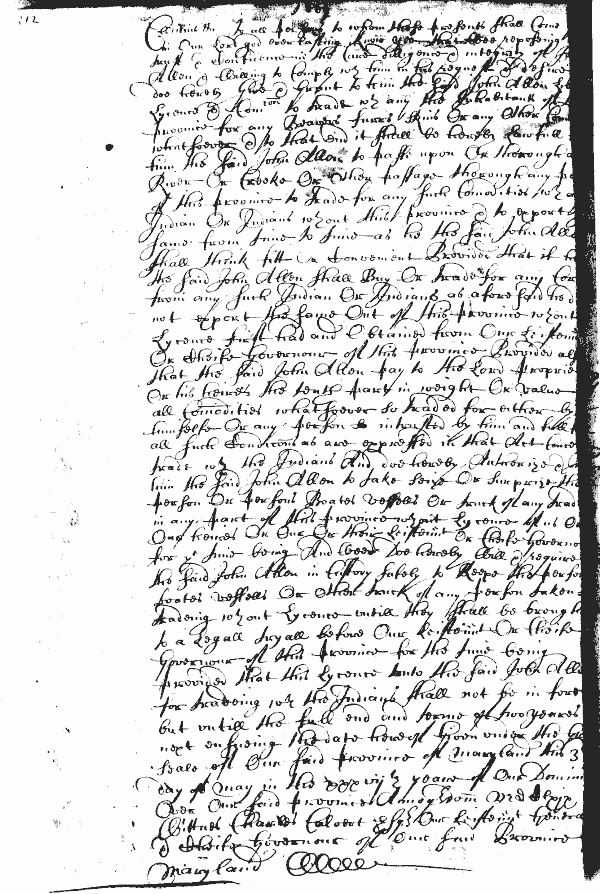 212
Cecilius &c. To all persons to whom these presents shall Come
in Our Lord god everlasting Know yee that wee reposeing
trust & Confidence in the Care diligence & integrity of
Allen & Willing to Comply wth him in his request & desire
doe hereby Give & Grant to him the said John Allen
Lycence & Comicon to trade wth any the Inhabitants of
province for any Beavers furrs skins Or any Other
whatsoever & to that end it shall be hereby lawfull
him the said John Allen to passe upon Or thorough
River Or Creeke Or Other passage thorough any
of this province to trade for any such Comodities wth
Indian Or Indians wthout this province & to export
same from time to time as he the said John Allen
shall think fitt Or Convenient Provided that if
the said John Allen shall Buy Or trade for any
from any such Indian Or Indians as aforesaid he
not export the same Out of this Province wthout
Lycence first had and Obtained from Our Leiftenn
Or Cheife Governour of this province Provided
that the said John Allen pay to the Lord Proprie
Or his heires the tenth part in weight Or value
all Comodities whatsoever so traded for either by
himselfe Or any person intrusted by him and
all such Condicons as are expressed in that Act
trade wth the Indians And doe hereby Autorize
him the said John Allen to take seize Or surprize
person Or persons Boates vessells Or truck of any
in any part of this province wthout Lycence of us Or
Our heires Or Our Or their Leiftennt Or Cheife Governo
for ye time being And wee Doe hereby Will & require
the said John Allen in Custody safely to Keepe the person
boates vessells Or Other truck of any person taken
tradeing wthout Lycence untill they shall be brought
to a Legall tryall before Our Leiftennt Or Cheife
Governour of this Province for the time being
Provided that this Lycence unto the said John Alle
for tradeing wth the Indians shall not be in force
but untill the full end and terme of two yeares
next ensueing the date hereof Given under the
seale of Our said Province of Maryland this 3
day of May in the xxxviijth yeare of Our Domin
Over Our said province Annoq Dom
Wittnes Charles Calvert Esqr Our Leiftennt Genera
& Cheife Governour of Our said Province
Maryland